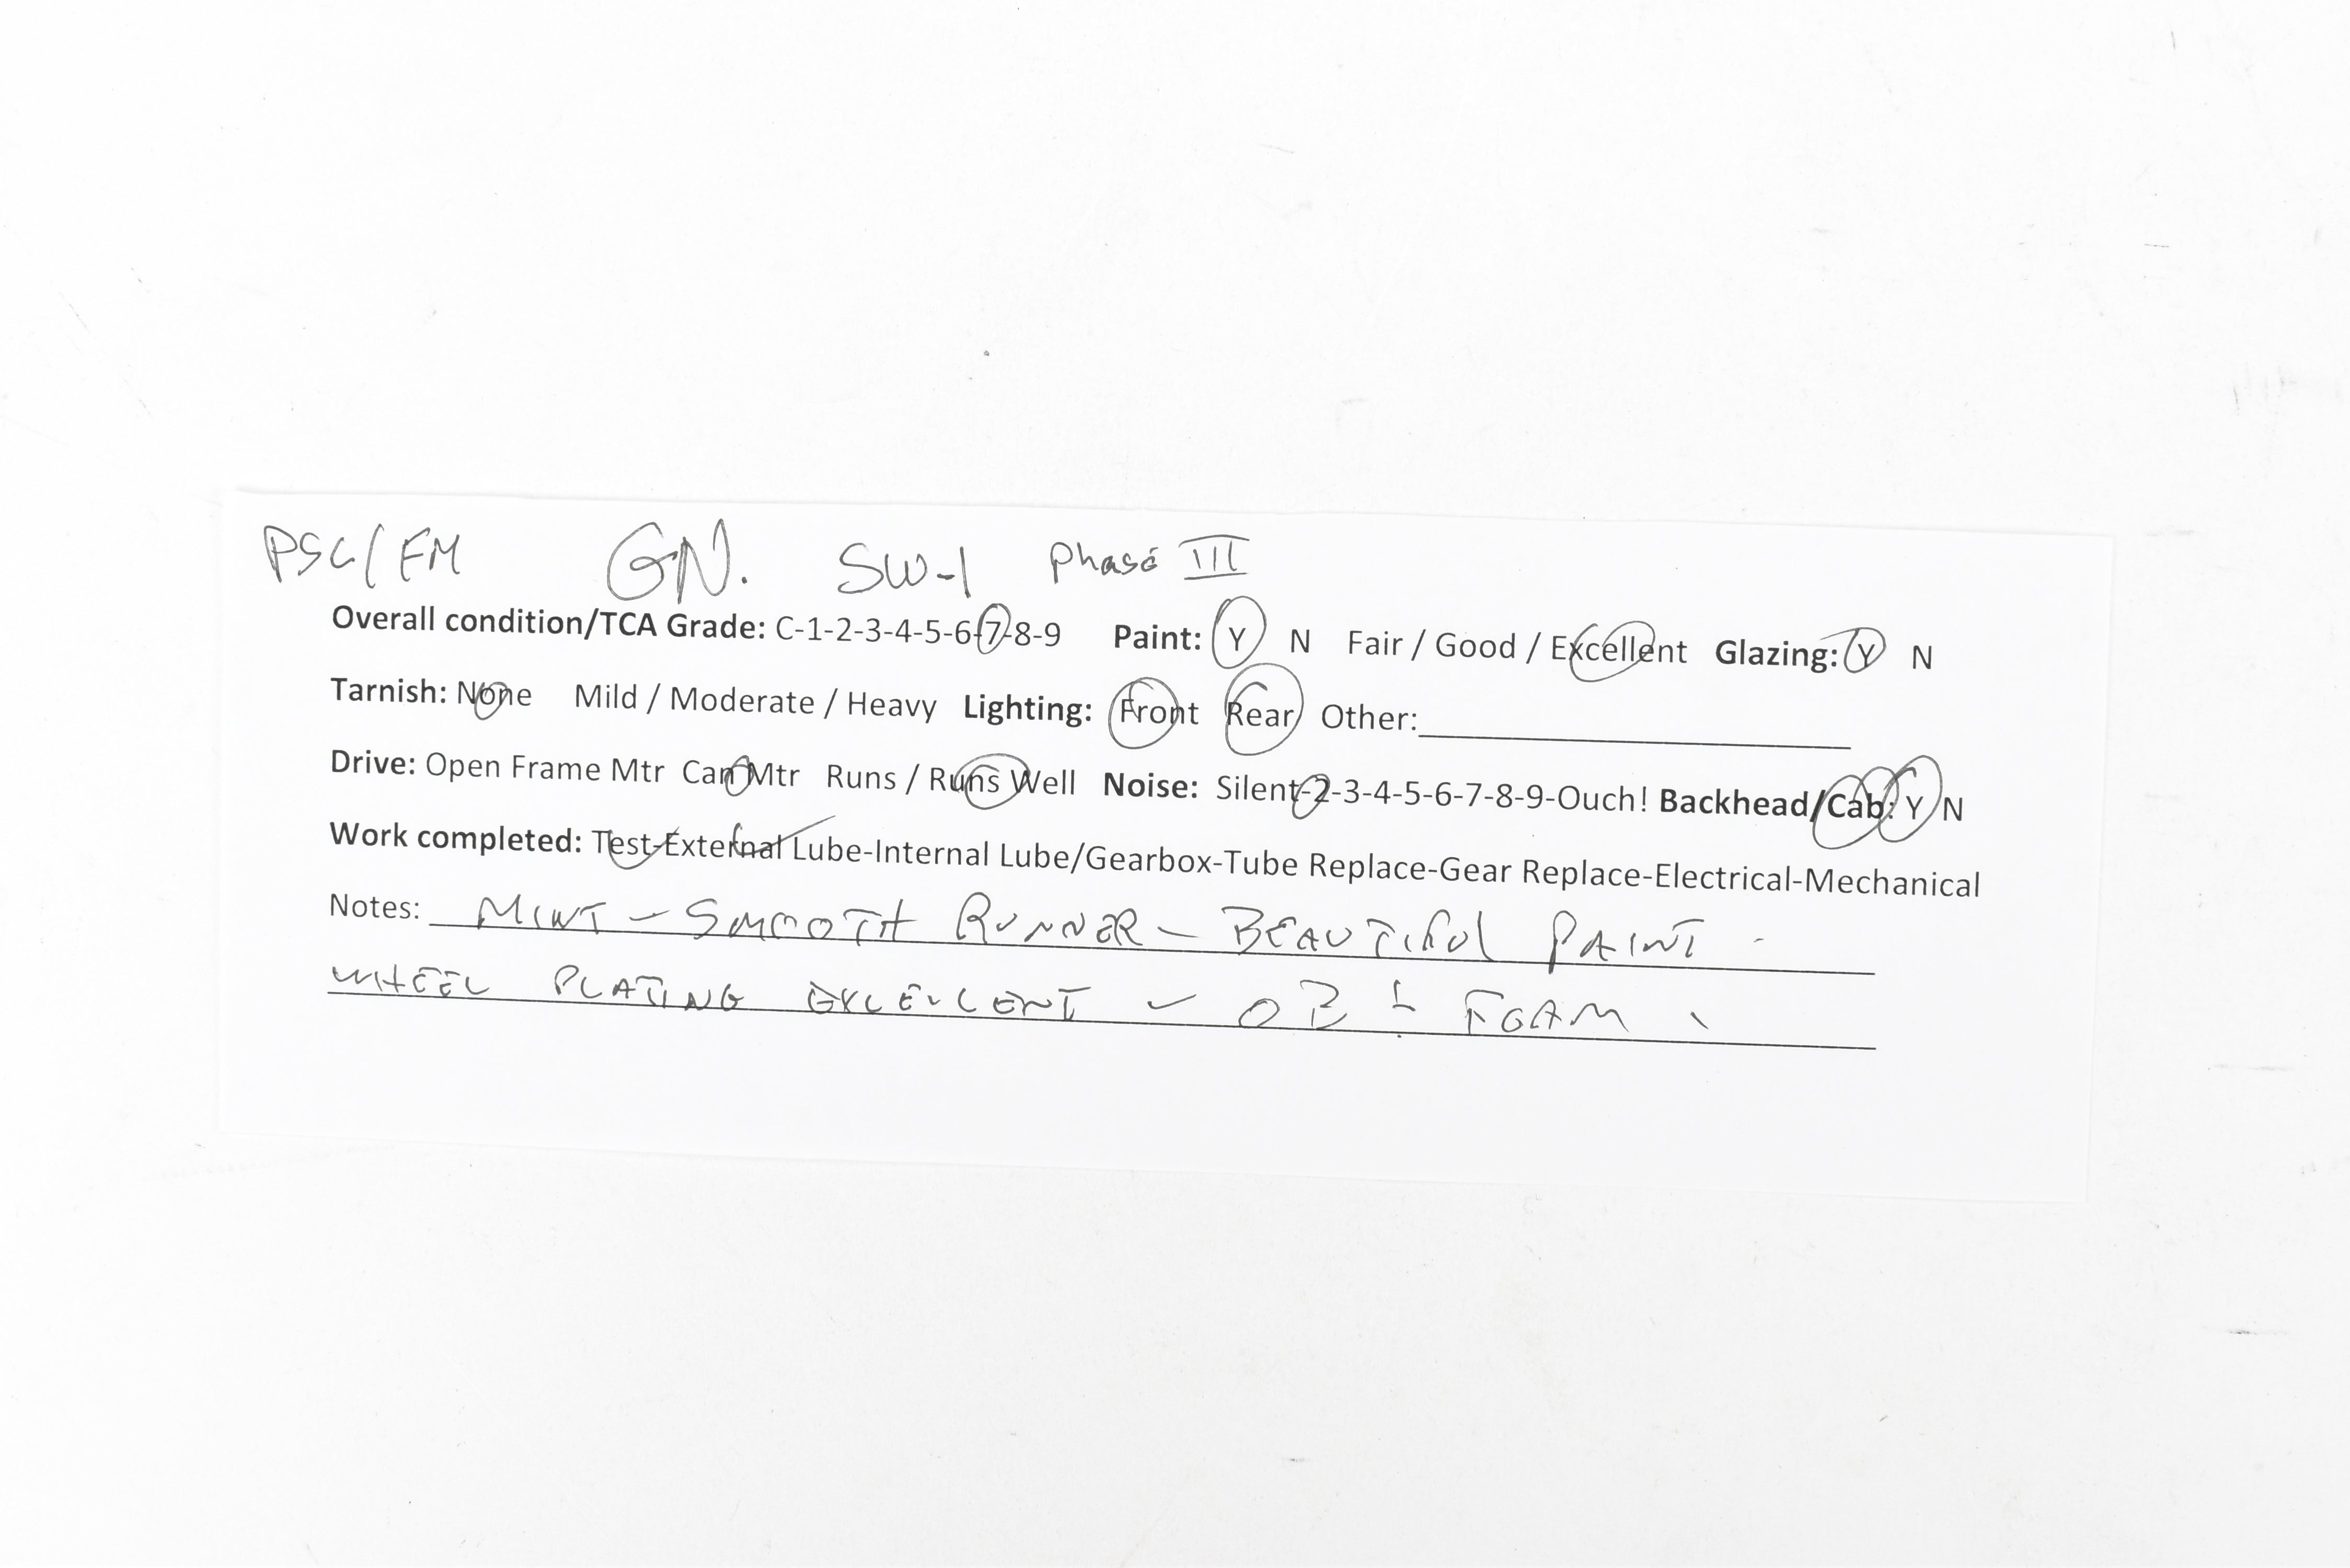 PSC/FM GN. SW-1 Phase III
Overall condition/TCA Grade: C-1-2-3-4-5-6-7-8-9 Paint: Y N Fair / Good / Excellent Glazing: Y N
Tarnish: None Mild / Moderate / Heavy Lighting: Front Rear Other:
Drive: Open Frame Mtr Can Mtr Runs / Runs Well Noise: Silent-2-3-4-5-6-7-8-9-Ouch! Backhead/Cab: Y N
Work completed: Test-External Lube-Internal Lube/Gearbox-Tube Replace-Gear Replace-Electrical-Mechanical
Notes: MINT - SMOOTH RUNNER - BEAUTIFUL PAINT -
WHEEL PLATING EXCELLENT - OB + FOAM